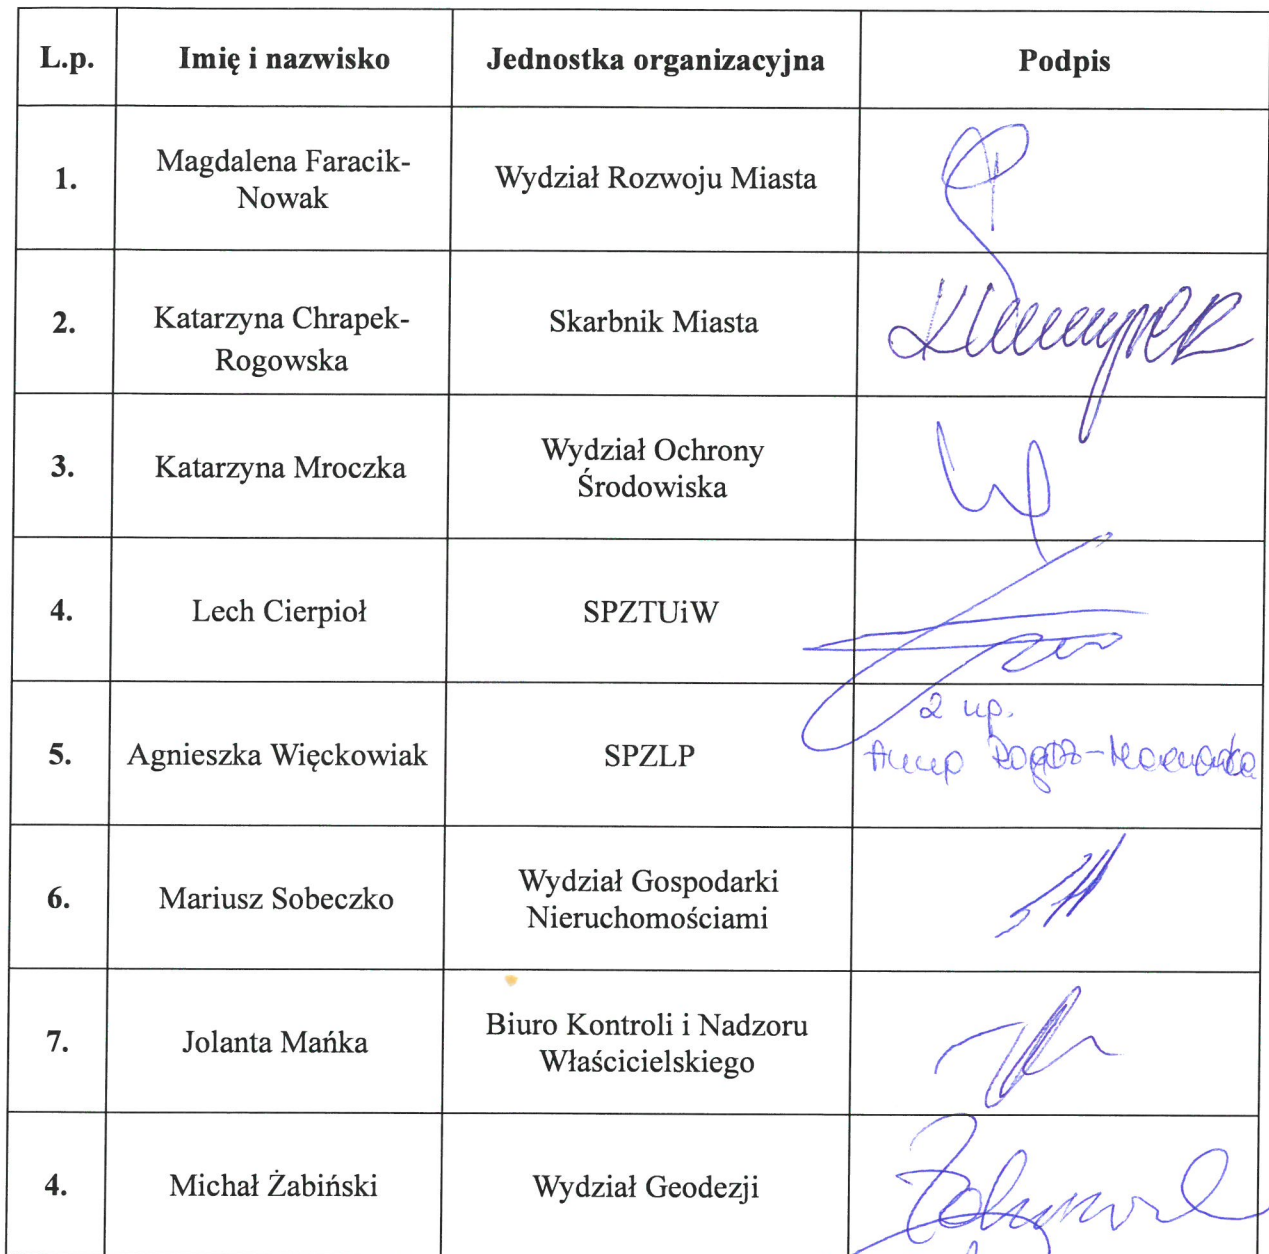 L.p. Imię i nazwisko Jednostka organizacyjna Podpis
1. Magdalena Faracik-
Nowak Wydział Rozwoju Miasta
2. Katarzyna Chrapek-
Rogowska Skarbnik Miasta
3. Katarzyna Mroczka Wydział Ochrony
Środowiska
4. Lech Cierpioł SPZTUiW
5. Agnieszka Więckowiak SPZLP
6. Mariusz Sobeczko Wydział Gospodarki
Nieruchomościami
7. Jolanta Mańka Biuro Kontroli i Nadzoru
Właścicielskiego
4. Michał Żabiński Wydział Geodezji